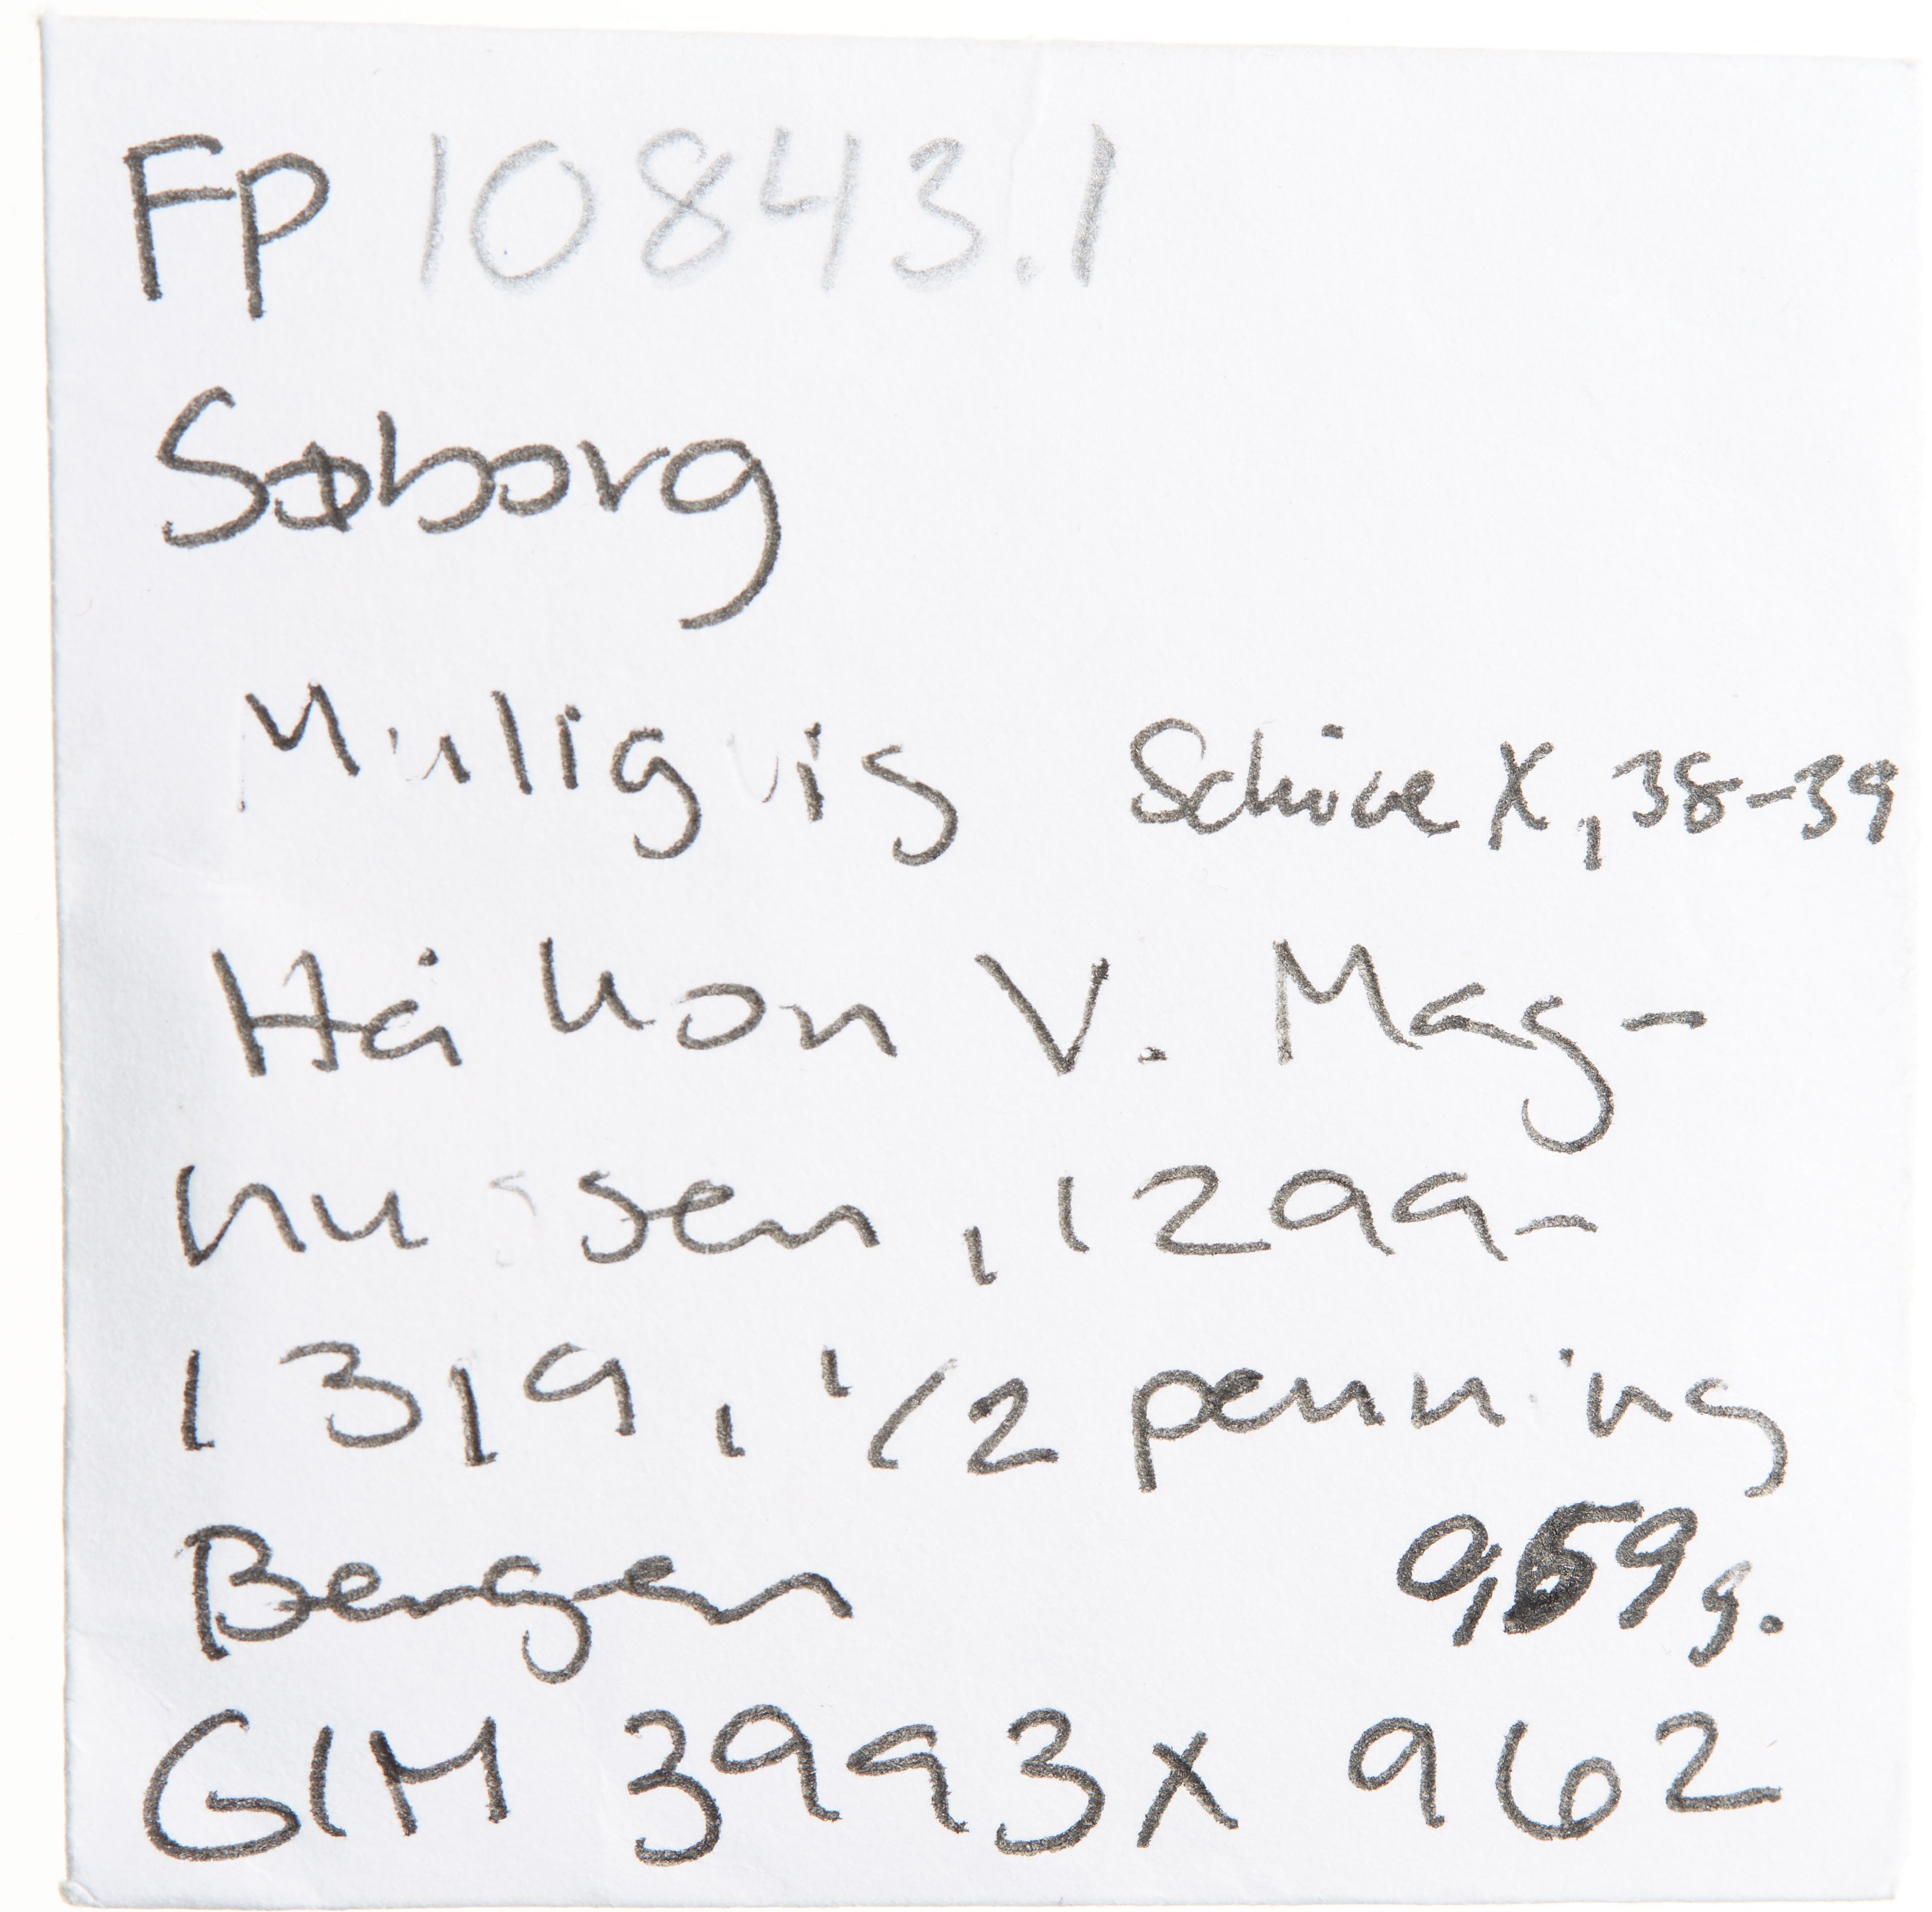 Fp 10843.1
Søborg
Muligvis Schive X, 38-39
Håkon V. Mag-
nussen, 1299-
1319, 1/2 penning
Bergen 0,59 g.
GIM 3993x962